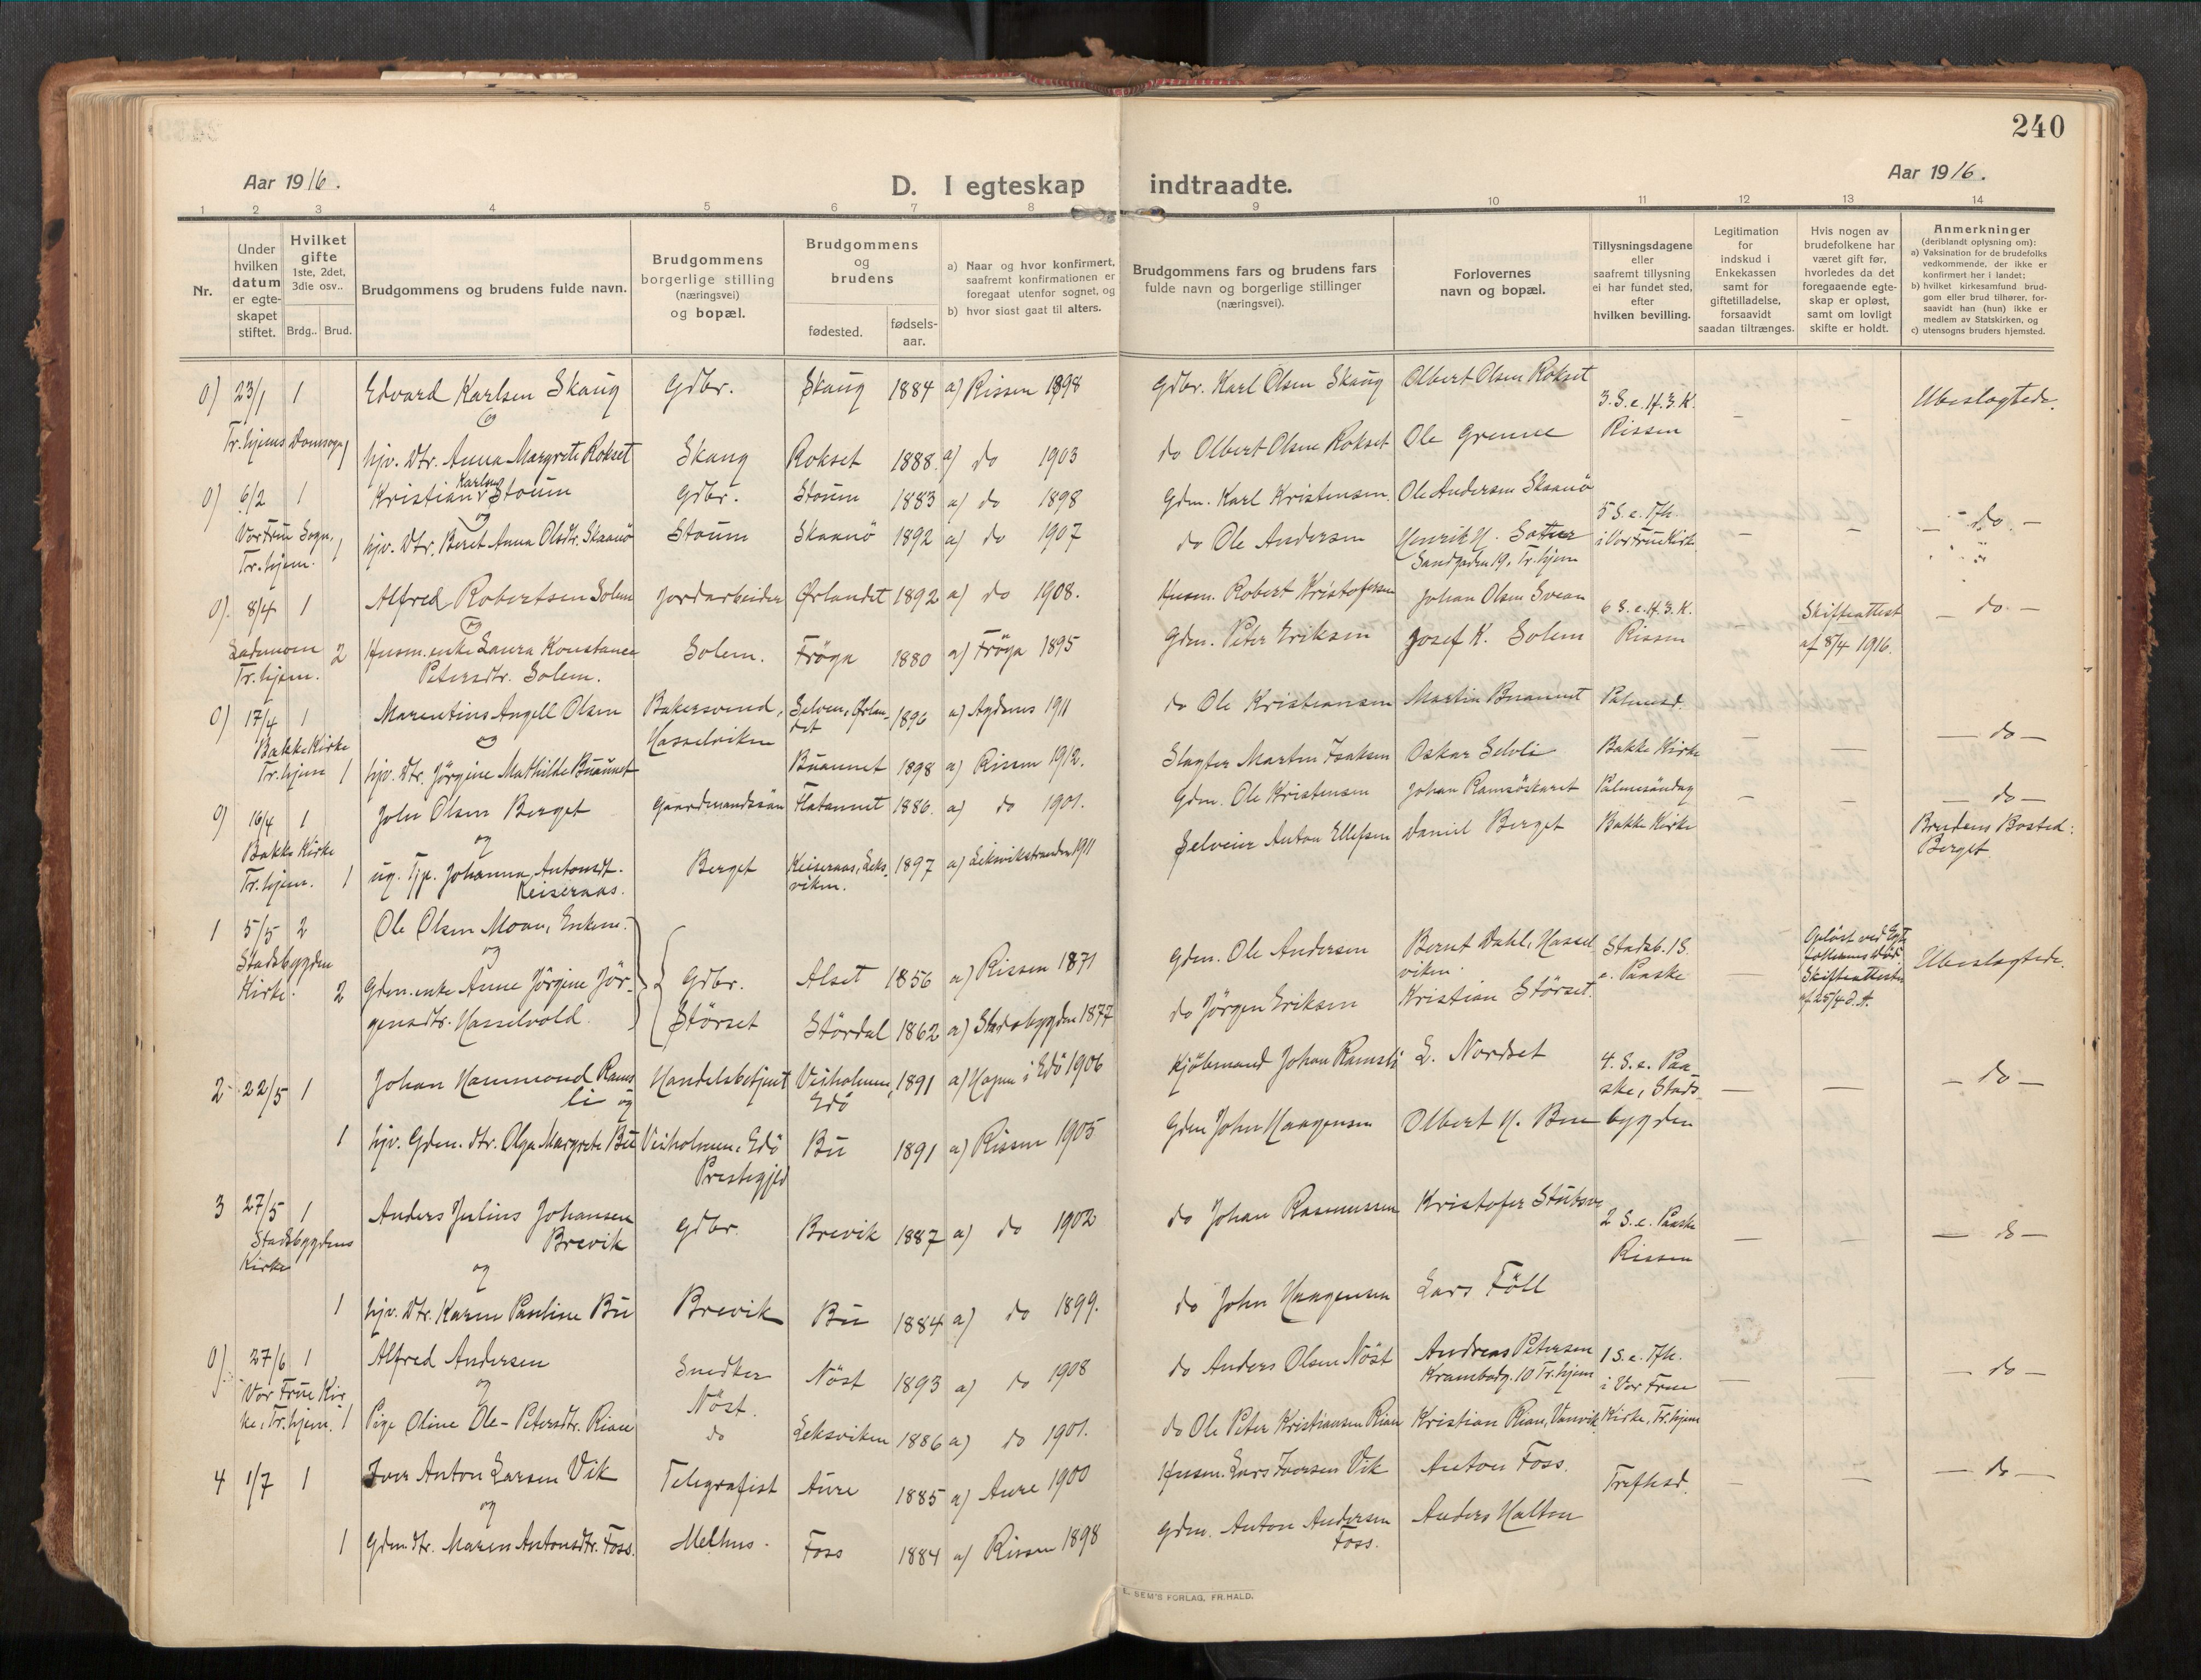 240
Aar 1916.
D. I egteskap indtraadte.
Aar 1916.
1 2 3 4 5 6 7 8 9 10 11 12 13 14
Nr.
Under hvilken datum er egte-skapet stiftet.
Hvilket gifte 1ste, 2det, 3die osv..
Brdg.. Brud.
Brudgommens og brudens fulde navn.
Brudgommens borgerlige stilling (næringsvei) og bopæl.
Brudgommens og brudens
fødested.
fødsels-aar.
a) Naar og hvor konfirmert, saafremt konfirmationen er foregaat utenfor sognet, og
b) hvor sidst gaat til alters.
Brudgommens fars og brudens fars fulde navn og borgerlige stillinger (næringsvei).
Forlovernes navn og bopæl.
Tillysningsdagene eller saafremt tillysning ei har fundet sted, efter hvilken bevilling.
Legitimation for indskud i Enkekassen samt for giftetilladelse, forsaavidt saadan tiltrænges.
Hvis nogen av brudefolkene har været gift før, hvorledes da det foregaaende egte-skap er opløst, samt om lovligt skifte er holdt.
Anmerkninger (deriblandt oplysning om):
a) Vaksination for de brudefolks vedkommende, der ikke er konfirmert her i landet;
b) hvilket kirkesamfund brud-gom eller brud tilhører, for-saavidt han (hun) ikke er medlem av Statskirken, og
c) utensogns bruders hjemsted.
0) 23/1 1 Edvard Karlsen Skaug Gdbr. Skaug 1884 a) Rissen 1898 Gdbr. Karl Olsen Skaug Olbert Olsen Rokset 3. S. e. H. 3. K. — — Ubeslagtede.
og
Tr.hjems Domsogn 1 hjv. Dtr. Anna Margrete Rokset Skaug Rokset 1888 a) do 1903 do Olbert Olsen Rokset Ole Grenne Rissen
0) 6/2 1 Kristian Karlsen Stoum Gdbr. Stoum 1883 a) do 1898 Gdm. Karl Kristensen Ole Andersen Skaanö 5 S. e. Hh. — — — do. —
og
Vor Frue Sogn, Tr.hjem. 1 hjv. Dtr. Beret Anna Olsdtr. Skaanö Stoum Skaanö 1892 a) do 1907 do Ole Andersen Henrik H. Sætter i Vor Frue Kirke
Sandgaden 19, Tr.hjem
0) 8/4 1 Alfred Robertsen Solem Jordarbeider Ørlandet 1892 a) do 1908. Husm. Robert Kristofersen Johan Olsen Svean 6 S. e. H. 3. K. Skifteattest — do. —
og
Lademoen Tr.hjem. 2 Husm. enke Laura Konstance Solem. Fröya 1880 a) Fröya 1895 Gdm. Peter Eriksen Josef K. Solem Rissen af 8/4 1916.
Petersdtr. Solem.
0) 17/4 1 Marentius Angell Olsen Bakersvend, Selven, Ørlan-det 1896 a) Agdenes 1911 do Ole Kristiansen Martin Buaunet Palmesd. — — — do —
og Hasselviken
Bakke Kirke Tr.hjem 1 hjv. Dtr. Jörgine Mathilde Buaunet Buaunet 1898 a) Rissen 1912. Slagter Martin Isaksen Oskar Selvli Bakke Kirke
0) 16/4 1 John Olsen Berget Gaardmandssön Flataunet 1886 a) do 1901. Gdm. Ole Kristensen Johan Ramsöskaret Palmesöndag — — — do —
og
Bakke Kirke Tr.hjem. 1 ug. Tjp. Johanna Antonsdt. Berget Keiseraas, Leks-viken. 1897 a) Leksvikstranden 1911 Selveier Anton Ellefsen Daniel Berget Bakke Kirke Brudens Bosted: Berget
Keiseraas.
1 5/5 2 Ole Olsen Moan, Enkem. Gdbr. Alset 1856 a) Rissen 1871 Gdm. Ole Andersen Bernt Dahl, Hassel-viken. Stadsb. 1 S. e. Paaske — Opløst ved Egte-fellernes Død Skifteattester af 25/4 d. A. Ubeslagtede.
og
Stadsbygden Kirke. 2 Gdm. enke Anne Jörgine Jör-gensdtr. Hasselvold Størset Stördal 1862 a) Stadsbygden 1877 do Jörgen Eriksen Kristian Størset.
2 22/5 1 Johan Hammond Ramsli Handelsbetjent Veiholmen, Edö 1891 a) Hopen i Edö 1906 Kjöbmand Johan Ramsli L. Nordset 4. S. e. Paa-ske, Stads-bygden — — — do —
og
1 hjv. Gdm. dtr. Olga Margrete Bu Veiholmen, Edö Prestegjeld Bu 1891 a) Rissen 1905 Gdm John Haagensen Olbert H. Bue
3 27/5 1 Anders Julius Johansen Brevik Gdbr. Brevik 1887 a) do 1902 do Johan Rasmussen Kristofer Stubsve 2 S. e. Paaske Rissen — — — do —
Stadsbygdens Kirke
og
1 hjv. Dtr. Karen Pauline Bu Brevik Bu 1884 a) do 1899. do John Haagensen Lars Föll
0) 27/6 1 Alfred Andersen Snedker Nöst 1893 a) do 1908 do Anders Olsen Nöst Andreas Petersen 1 S. e. Tfh. — — — do —
og Nöst. Krambodg. 10 Tr.hjem i Vor Frue
Vor Frue Kir-ke, Tr.hjem. 1 Pige Oline Ole-Petersdtr. Rian do Leksviken 1886 a) do 1901. do Ole Peter Kristiansen Rian Kristian Rian, Vanvik Kirke, Tr.hjem
4 1/7 1 Iver Anton Larsen Vik Telegrafist Aure 1885 a) Aure 1900 Husm. Lars Iversen Vik Anton Foss. Trefhsd. — — — do —
og
1 Gdm. dtr. Maren Antonsdtr. Foss. Melhus. Foss 1884 a) Rissen 1898 Gdm. Anton Andersen Foss. Anders Halten
E. SEM'S FORLAG, FR.HALD.